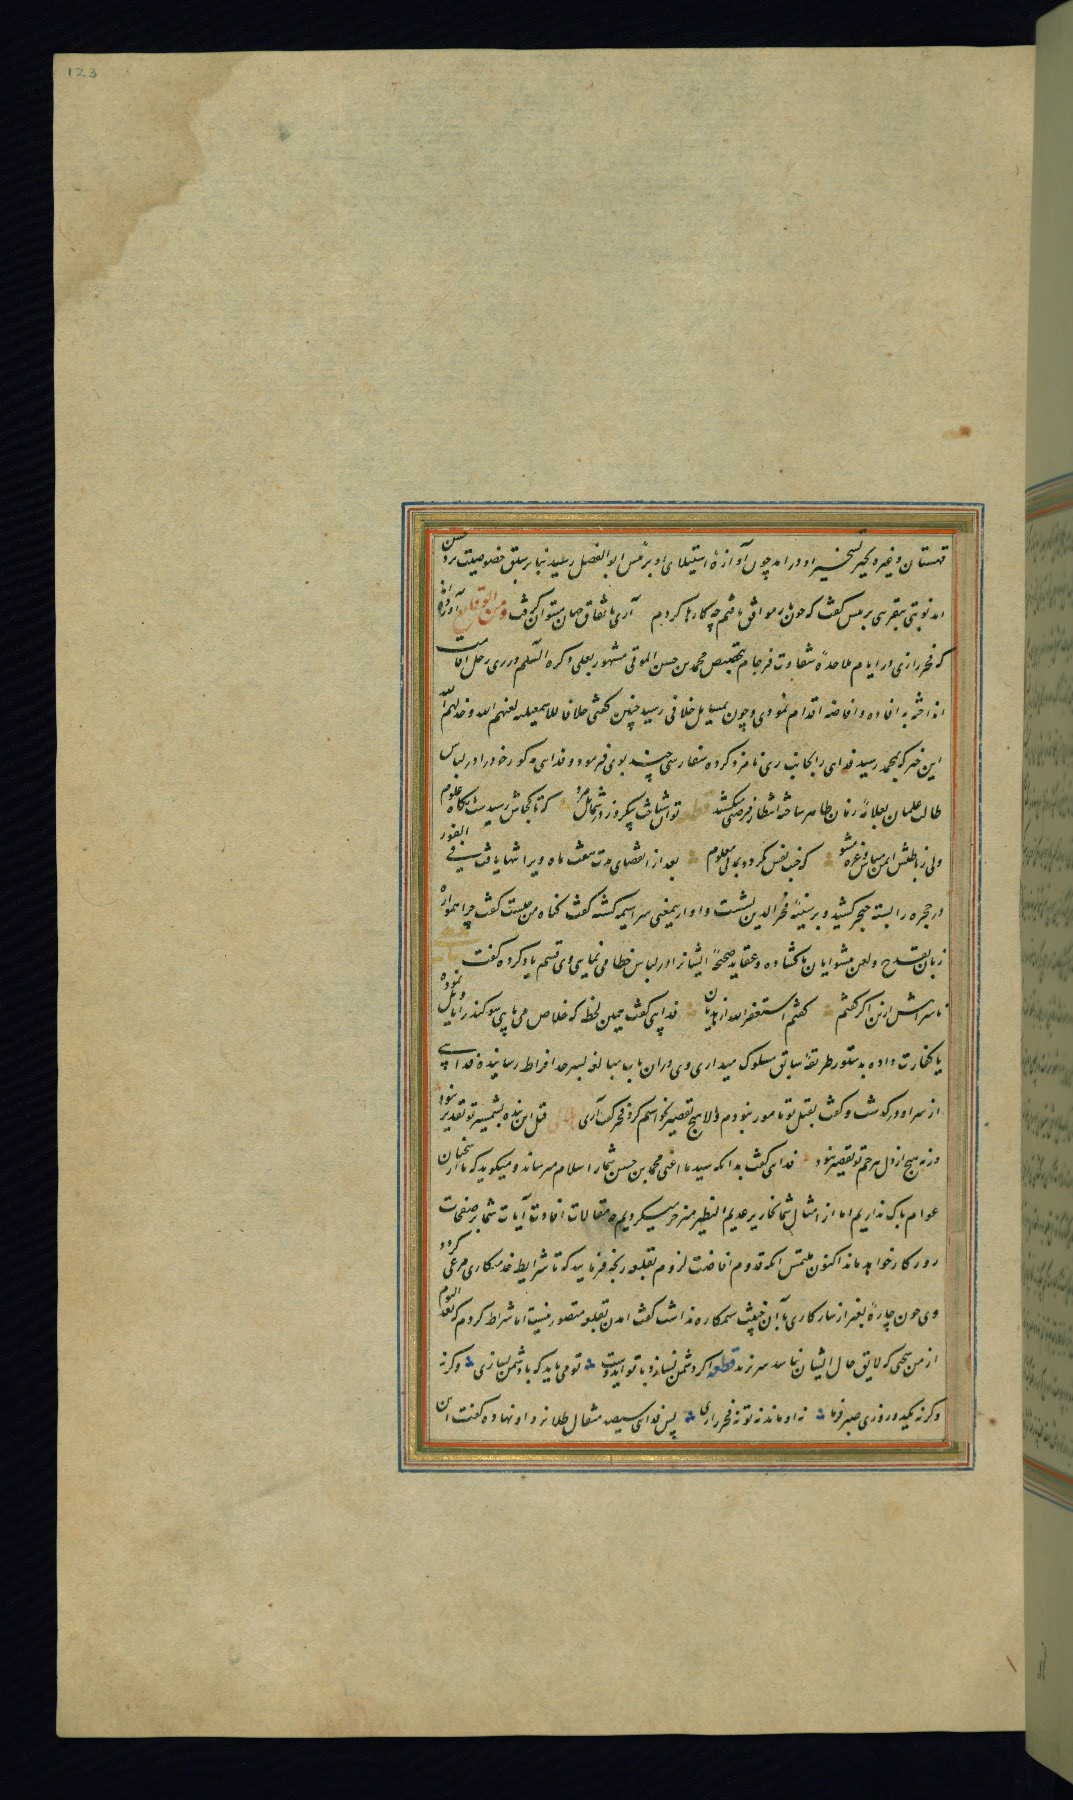 123
قهستان و غیره بحیز تسخیر او درامد چون آوازهٔ استیلای او برئیس ابوالفضل رسید بنابر سبق خصوصیت نزد حسن
امد نوبتی بتقریبی برئیس گفت که چون یار موافق یافتم چه کارها کردم آری باتفاق جهان میتوان گرفت و من الوقایع آورده اند
که فخر رازی در ایام ملاحدهٔ شقاوت فرجام بتخصیص محمد بن حسن الموتی مشهور بعلی ذکره السلم در ری رحل اقامت
انداخته به افاده و افاضه اقدام نمودی و چون بمسایل خلافی رسید چنین گفتی خلافا للاسمعیلیه لعنهم الله و خذلهم الله
این خبر که بمحمد رسید فدایی را بجانب ری نامزد کرده سفارشی چند بوی فرمود و فدایی مذکور خود را در لباس
طالب علمان بعلامهٔ زمان ظاهر ساخته انتظار فرصتی میکشید قطعه توان شناخت بیکروز در شمایل مرد که تا کجاش رسیدست پایگاه علوم
ولی ز باطنش ایمن مباش و غره مشو که خبث نفس نگردد بسالها معلوم بعد از انقضای مدت هفت ماه ویرا تنها یافت فی الفور
در حجره را بسته خنجر کشید و بر سینهٔ فخر الدین نشست و او ازیمعنی سراسیمه گشته گفت گناه من چیست گفت چرا همواره
زبان بقدح و لعن پیشوایان ما گشاده و عقاید صحیحهٔ ایشانرا در لباس خطا می نمایی وی قسم یاد کرده گفت
ناسزایش ازین اگر گفتم گفتم استغفر الله از هذیان فدایی گفت همین لحظه که خلاص می یابی سوگند را تاویل نموده
یا کفارت داده بدستور طریقهٔ سابق مسلوک میداری وی دران باب مبالغه بسرحد افراط رسانیده فدایی
از سر او درگذشت و گفت بقتل تو مامور نبودم والا هیچ تقصیر نخواستم کرد فخر گفت آری قتل این بنده بشمشیر تو تقدیر نبود
ورنه هیچ از دل بیرحم تو تقصیر نبود فدایی گفت بدانکه سید ما اعنی محمد بن حسن شما را سلام میرساند و میگوید که ما از سخنان
عوام باک نداریم اما از امثال شما نحاریر عدیم النظیر متحرز میگردیم چه مقالات افادت آیات شما بر صفحات
روزگار خواهد ماند اکنون ملتمس انکه قدوم افاضت لزوم بقلعه رنجه فرمایید که تا شرایط خدمتکاری مرعی گردد
وی چون چارهٔ بغیر از سازکاری با آن خبیث ستمکاره نداشت گفت امدن بقلعه متصور نیست اما شرط کردم که بعد الیوم
از من سخنی که لایق حال ایشان نباشد سر نزند قطعه اگر دشمن نسازد با تو ایدوست تو می باید که با دشمن بسازی وگرنه
وگرنه یکدو روزی صبر فرما نه او ماند نه تو نه فخر رازی پس فدایی سیصد مثقال طلا نزد او نهاده گفت این